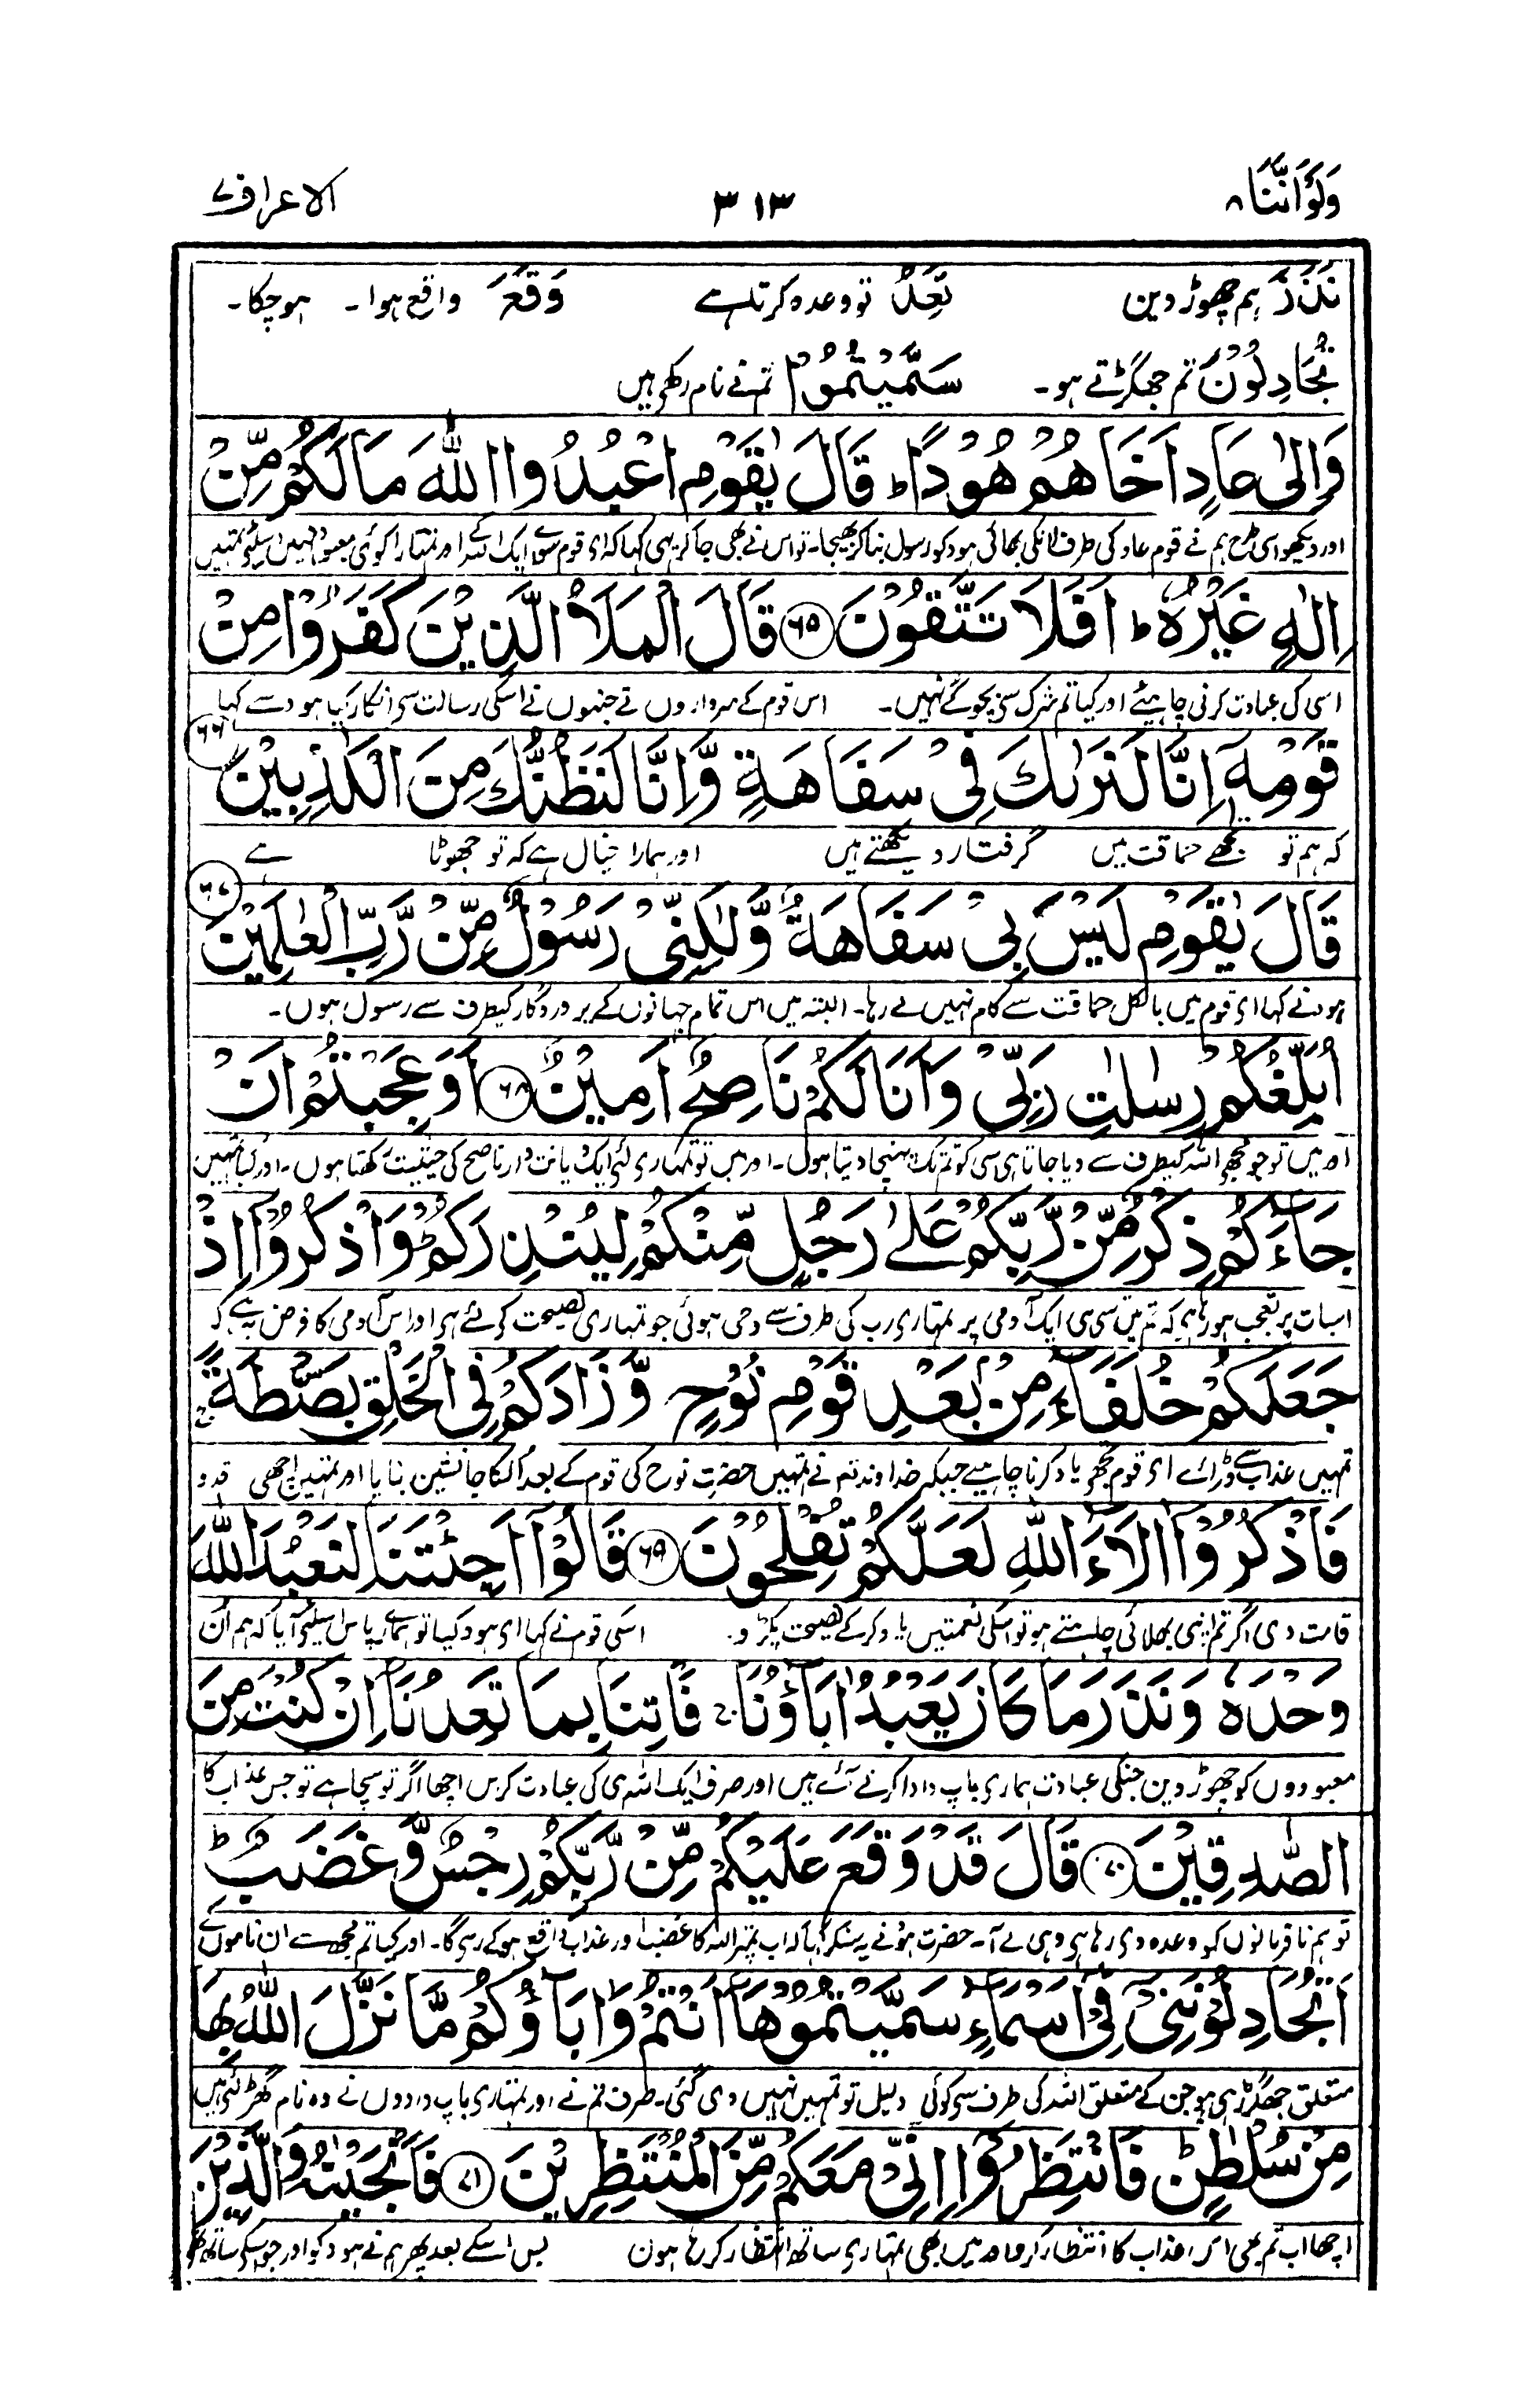 وَلَوْ اَنَّنَا ۸ ۳۱۳ الاعراف ۷
نَذَرَ ہم چھوڑ دین تَعِدُ تو وعدہ کرتا ہے وَقَعَ واقع ہوا ۔ ہوچکا ۔
تُجَادِلُوْنَ تم جھگڑتے ہو ۔ سَمَّيْتُمُوْ تم نے نام رکھے ہیں
وَاِلٰى عَادٍ اَخَاهُمْ هُوْدًا ؕ قَالَ يٰقَوْمِ اعْبُدُوا اللّٰهَ مَا لَكُمْ مِّنْ
اور دیکھو اسی طرح ہم نے قوم عاد کی طرف انکی بھائی ہود کو رسول بنا کر بھیجا ۔ تو اس نے بھی جا کر یہی کہا کہ ای قوم سوے ایک اللہ اور تمہارا کوئی معبود نہیں اسلیئے تمہیں
اِلٰهٍ غَيْرُهٗ ؕ اَفَلَا تَتَّقُوْنَ ۶۵ قَالَ الْمَلَاُ الَّذِيْنَ كَفَرُوْا مِنْ
اسی کی عبادت کرنی چاہیئے اور کیا تم شرک سی بچو گے نہیں ۔ اس قوم کے سرداروں نے جنہوں نے اسکی رسالت سی انکار کیا ہود سے کہا
قَوْمِهٖۤ اِنَّا لَنَرٰىكَ فِيْ سَفَاهَةٍ وَّاِنَّا لَنَظُنُّكَ مِنَ الْكٰذِبِيْنَ ۶۶
کہ ہم تو تجھے حماقت میں گرفتار دیکھتے ہیں اور ہمارا خیال ہے کہ تو جھوٹا ہے
قَالَ يٰقَوْمِ لَيْسَ بِيْ سَفَاهَةٌ وَّلٰكِنِّيْ رَسُوْلٌ مِّنْ رَّبِّ الْعٰلَمِيْنَ ۶۷
ہود نے کہا ای قوم میں بالکل حماقت سے کام نہیں لے رہا ۔ البتہ میں اس تمام جہانوں کے پروردگار کیطرف سے رسول ہوں ۔
اُبَلِّغُكُمْ رِسٰلٰتِ رَبِّيْ وَاَنَا لَكُمْ نَاصِحٌ اَمِيْنٌ ۶۸ اَوَعَجِبْتُمْ اَنْ
اور میں تو جو مجھے اللہ کیطرف سے دیا جاتا ہی اسی کو تم تک پہنچا دیتا ہوں ۔ اور میں تو تمہاری لئی ایک دیانت دار ناصح کی حیثیت رکھتا ہوں ۔ اور کیا تمہیں
جَآءَكُمْ ذِكْرٌ مِّنْ رَّبِّكُمْ عَلٰى رَجُلٍ مِّنْكُمْ لِيُنْذِرَكُمْ ؕ وَاذْكُرُوْۤا اِذْ
اسبات پر تعجب ہو رہا ہی کہ تم میں سی ہی ایک آدمی پر تمہاری رب کی طرف سے وحی ہوئی جو تمہاری نصیحت کے لئے ہی اور اس آدمی کا فرض ہے کہ
جَعَلَكُمْ خُلَفَآءَ مِنْۢ بَعْدِ قَوْمِ نُوْحٍ وَّزَادَكُمْ فِي الْخَلْقِ بَصْۜطَةً ۚ
تمہیں عذاب سے ڈرائے ای قوم تجھے یاد کرنا چاہیے جبکہ خداوند تم نے تمہیں حضرت نوح کی قوم کے بعد انکا جانشین بنایا اور تمہیں اچھی قد و
فَاذْكُرُوْۤا اٰلَآءَ اللّٰهِ لَعَلَّكُمْ تُفْلِحُوْنَ ۶۹ قَالُوْۤا اَجِئْتَنَا لِنَعْبُدَ اللّٰهَ
قامت دی اگر تم اپنی بھلائی چاہتے ہو تو اسکی نعمتیں یاد کر کے نصیحت پکڑو ۔ اسکی قوم نے کہا ای ہود کیا تو ہمارے پاس اسلیئے آیا کہ ہم ان
وَحْدَهٗ وَنَذَرَ مَا كَانَ يَعْبُدُ اٰبَآؤُنَا ۚ فَاْتِنَا بِمَا تَعِدُنَاۤ اِنْ كُنْتَ مِنَ
معبودوں کو چھوڑ دین جنکی عبادت ہماری باپ دادا کرتے آئے ہیں اور صرف ایک اللہ ہی کی عبادت کریں اچھا اگر تو سچا ہے تو جس عذاب کا
الصّٰدِقِيْنَ ۷۰ قَالَ قَدْ وَقَعَ عَلَيْكُمْ مِّنْ رَّبِّكُمْ رِجْسٌ وَّغَضَبٌ ؕ
تو ہم نافرمانوں کو وعدہ دی رہا ہی وہی لے آ ۔ حضرت ہود نے یہ سنکر کہا کہ اب تمپر اللہ کا غضب اور عذاب واقع ہو کے رہی گا ۔ اور کیا تم مجھ سے ان ناموں کے
اَتُجَادِلُوْنَنِيْ فِيْۤ اَسْمَآءٍ سَمَّيْتُمُوْهَاۤ اَنْتُمْ وَاٰبَآؤُكُمْ مَّا نَزَّلَ اللّٰهُ بِهَا
متعلق جھگڑ رہی ہو جن کے متعلق اللہ کی طرف سی کوئی دلیل تو تمہیں نہیں دی گئی ۔ طرف تم نے اور تمہاری باپ دادوں نے وہ نام گھڑ لئی ہیں
مِنْ سُلْطٰنٍ ؕ فَانْتَظِرُوْۤا اِنِّيْ مَعَكُمْ مِّنَ الْمُنْتَظِرِيْنَ ۷۱ فَاَنْجَيْنٰهُ وَالَّذِيْنَ
اچھا اب تم بھی اس عذاب کا انتظار کرو اور میں بھی تمہاری ساتھ انتظار کر رہا ہون بس اسکے بعد پھر ہم نے ہود کو اور جو اسکے ساتھ